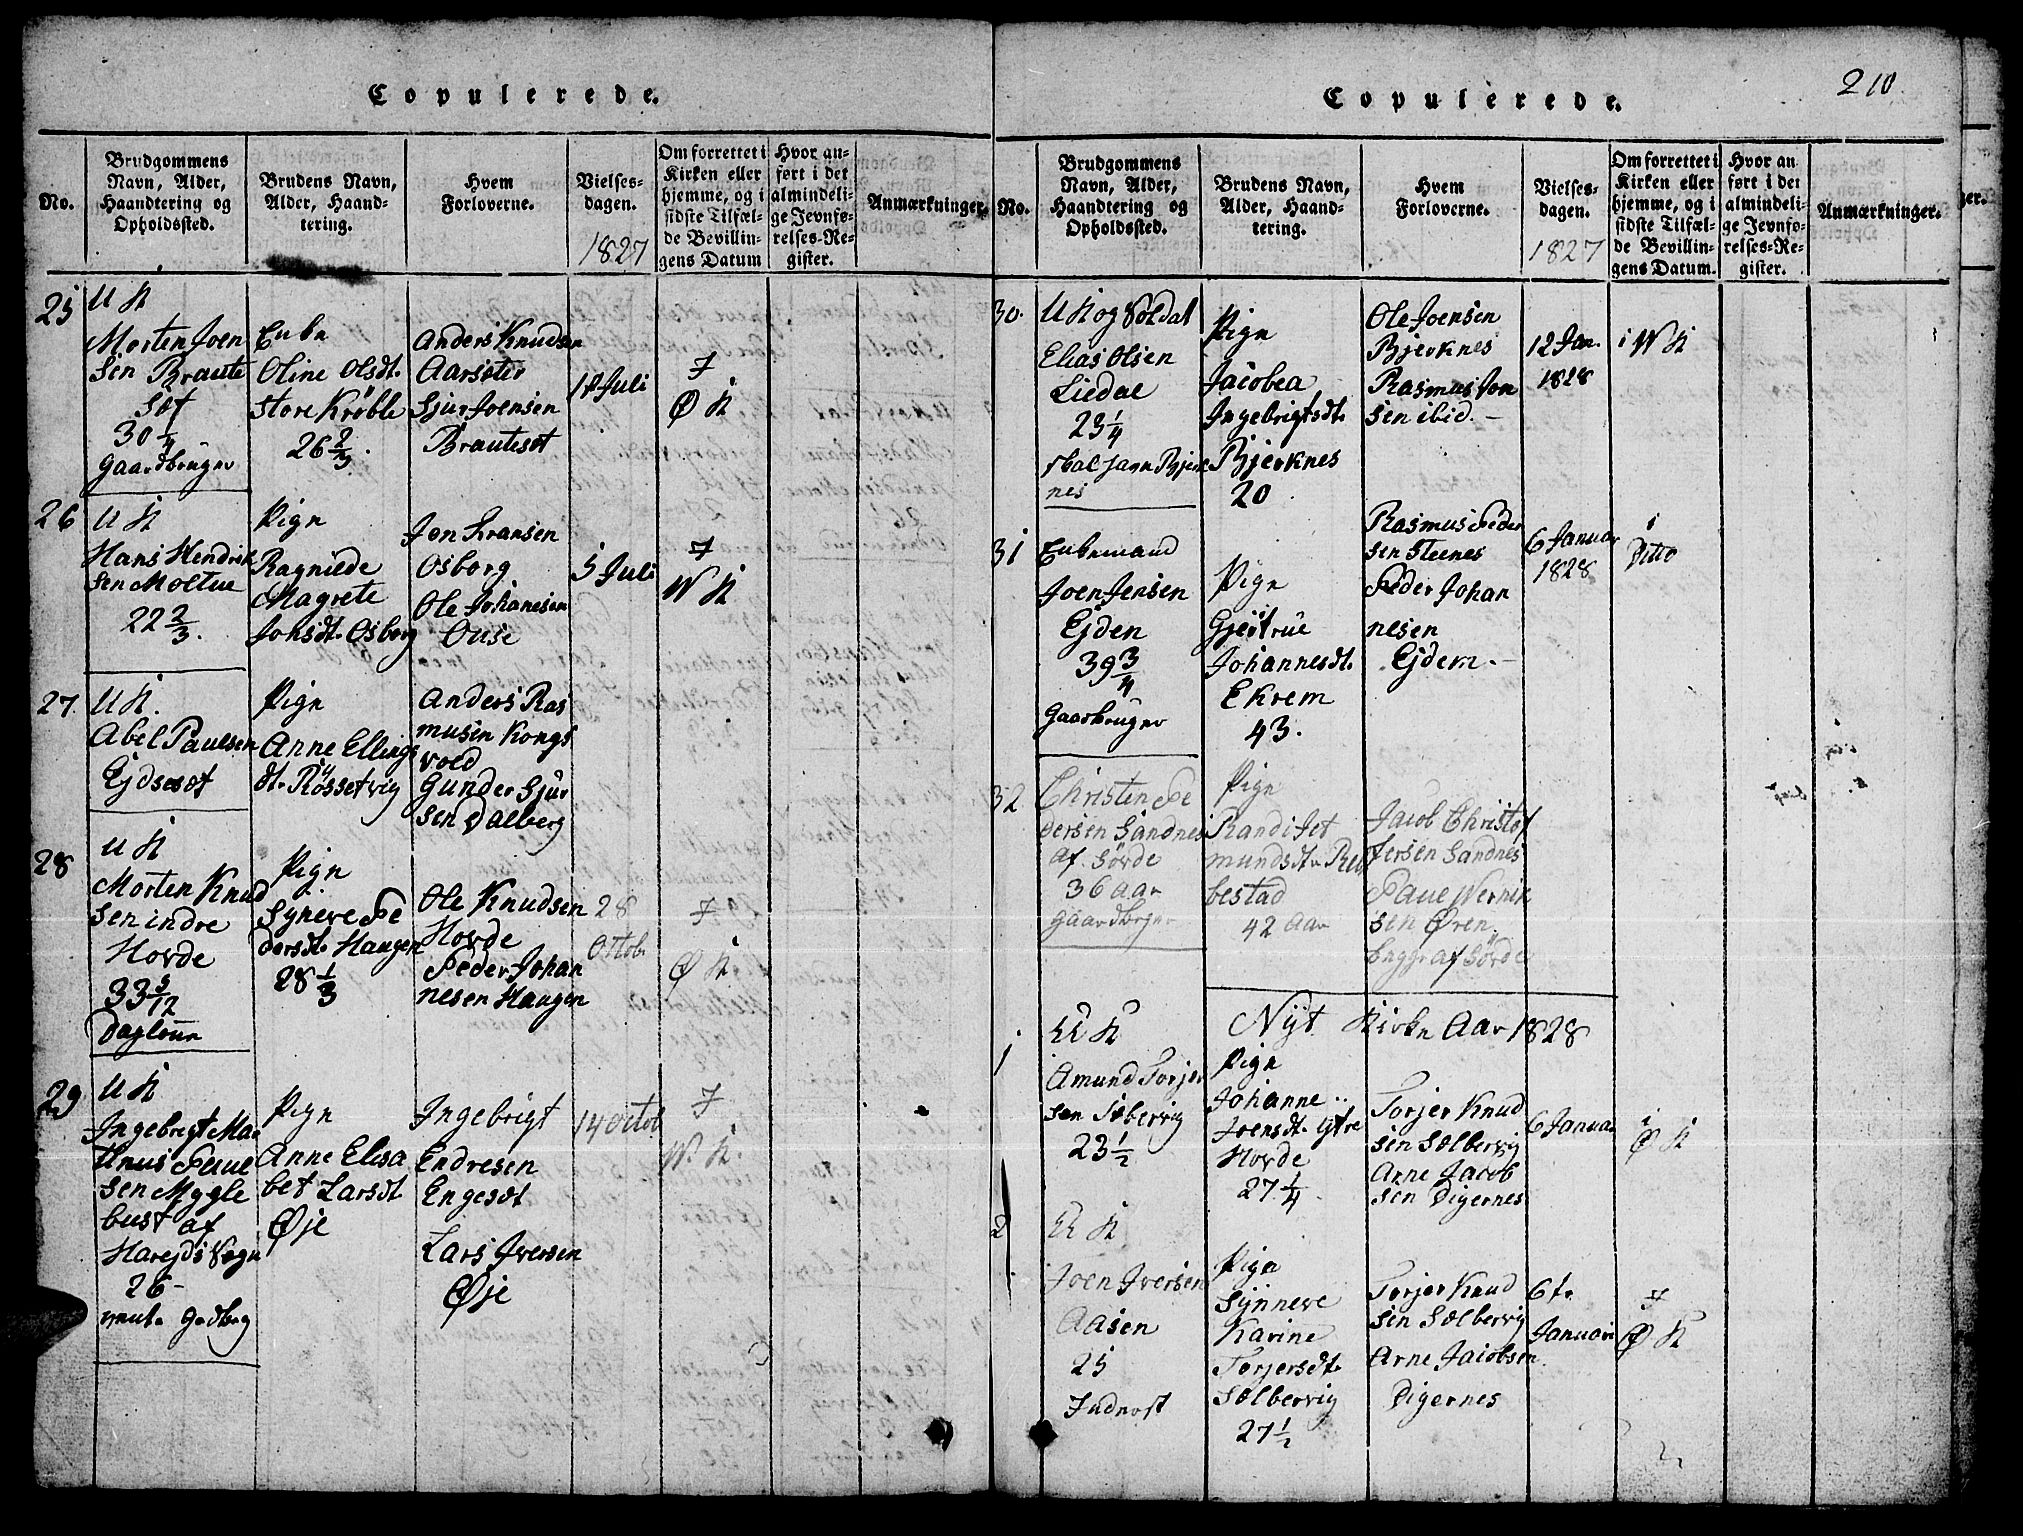 210
Copulerede.
No.
Brudgommens
Navn, Alder,
Haandtering og
Opholdssted.
Brudens Navn,
Alder, Haand-
tering.
Hvem
Forloverne.
Vielses-
dagen.
1827
Om forrettet i
Kirken eller
hjemme, og i
sidste Tilfæl-
de Bevillin-
gens Datum
Hvor an-
ført i det
almindeli-
ge Jevnfø-
relses-Re-
gister.
Anmærkninger.
25
U K
Morten Joen
sen Braute
Sæt
30 1/4
Gaardbruger
Enke
Oline Olsdt.
Store Krøble
26 2/3.
Anders Knudsen
Aarsæter
Sjur Joensen
Brautesæt
Juli
I
Ø K
26
U K
Hans Hendrik
sen Moltue
22 2/3.
Pige
Ragnilde
Magrete
Johsdt. Osborg
Jon
Osborg
Ole Johanesen
Ouse
5 Juli
I
W K
27.
U K.
Abel Paulsen
Ejdsesæt
Pige
Anne Ellings
dt. Røssetvig
Anders Ras
musen Kongs
vold
Gunder Sjur
sen Dalberg
28
U K
Morten Knud
sen indre
Hovde
33 5/12
Dagløner
Pige
Syneve Pe
dersdt. Haugen
28 1/3
Ole Knudsen
Hovde
Peder Johan
nesen Haugen
28
Octob.
I
Ø K
29
U K
Ingebrigt Mag
nus Paul
sen Mykle
bust af
Harejds Sogn
26 -
Pige
Anne Elisa
bet Larsdt
Øje
Ingebrigt
Endresen
Engesæt
Lars Iversen
Øje
14 Octob
I
W. K.
Copulerede.
No.
Brudgommens
Navn, Alder,
Haandtering og
Opholdssted.
Brudens Navn,
Alder, Haand-
tering.
Hvem
Forloverne.
Vielses-
dagen.
1827
Om forrettet i
Kirken eller
hjemme, og i
sidste Tilfæl-
de Bevillin-
gens Datum.
Hvor an
ført i det
almindeli-
ge Jevnfø-
relses-Re-
gister.
Anmærkninger.
30.
U K og Soldat
Elias Olsen
Liedal
23 1/4
nes
Pige
Jacobea
Ingebrigtsdt.
Bjerknes
20
Ole Joensen
Bjerknes
Rasmus Jon
sen ibid. -
12 Jan.
1828
i W K
31
Enkemand
Joen Jensen
Ejden
39 3/4
Gaarbruger
Pige
Gjertrue
Johannesdt.
Ekrem
43.
Rasmus Peder
sen Steenes
Peder Johan
nesen
Ejdem. -
6 Januar
1828
i
Ditto
32
Christen Pe
dersen Sandnes
af Sövde
36 Aar
Gaardbrger
Pige
Randi Jet
mundsdt. Reb
bestad
42 Aar
Jacob Christof
fersen Sandnes
Paul Wernik
sen Øren.
begge af Sövde
Nyt Kirke Aar 1828
1
U K
Amund Torjer
sen Sølbervig
23 1/2
Pige
Johanne
Joensdt. Ytre
Hovde
27 1/4.
Torjer Knud
sen Sølbervig
Arne Jacob
sen Digernes
6 Januar
i
Ø K
2
U K
Joen Iversen
Aasen
25
Inderst
Pige
Synneve
Karine
Torjersdt.
Sølbervig
27 1/2
Torjer Knud
sen Sølbervig
Arne Jacobsen
Digernes
6te
Januari
I
Ø K